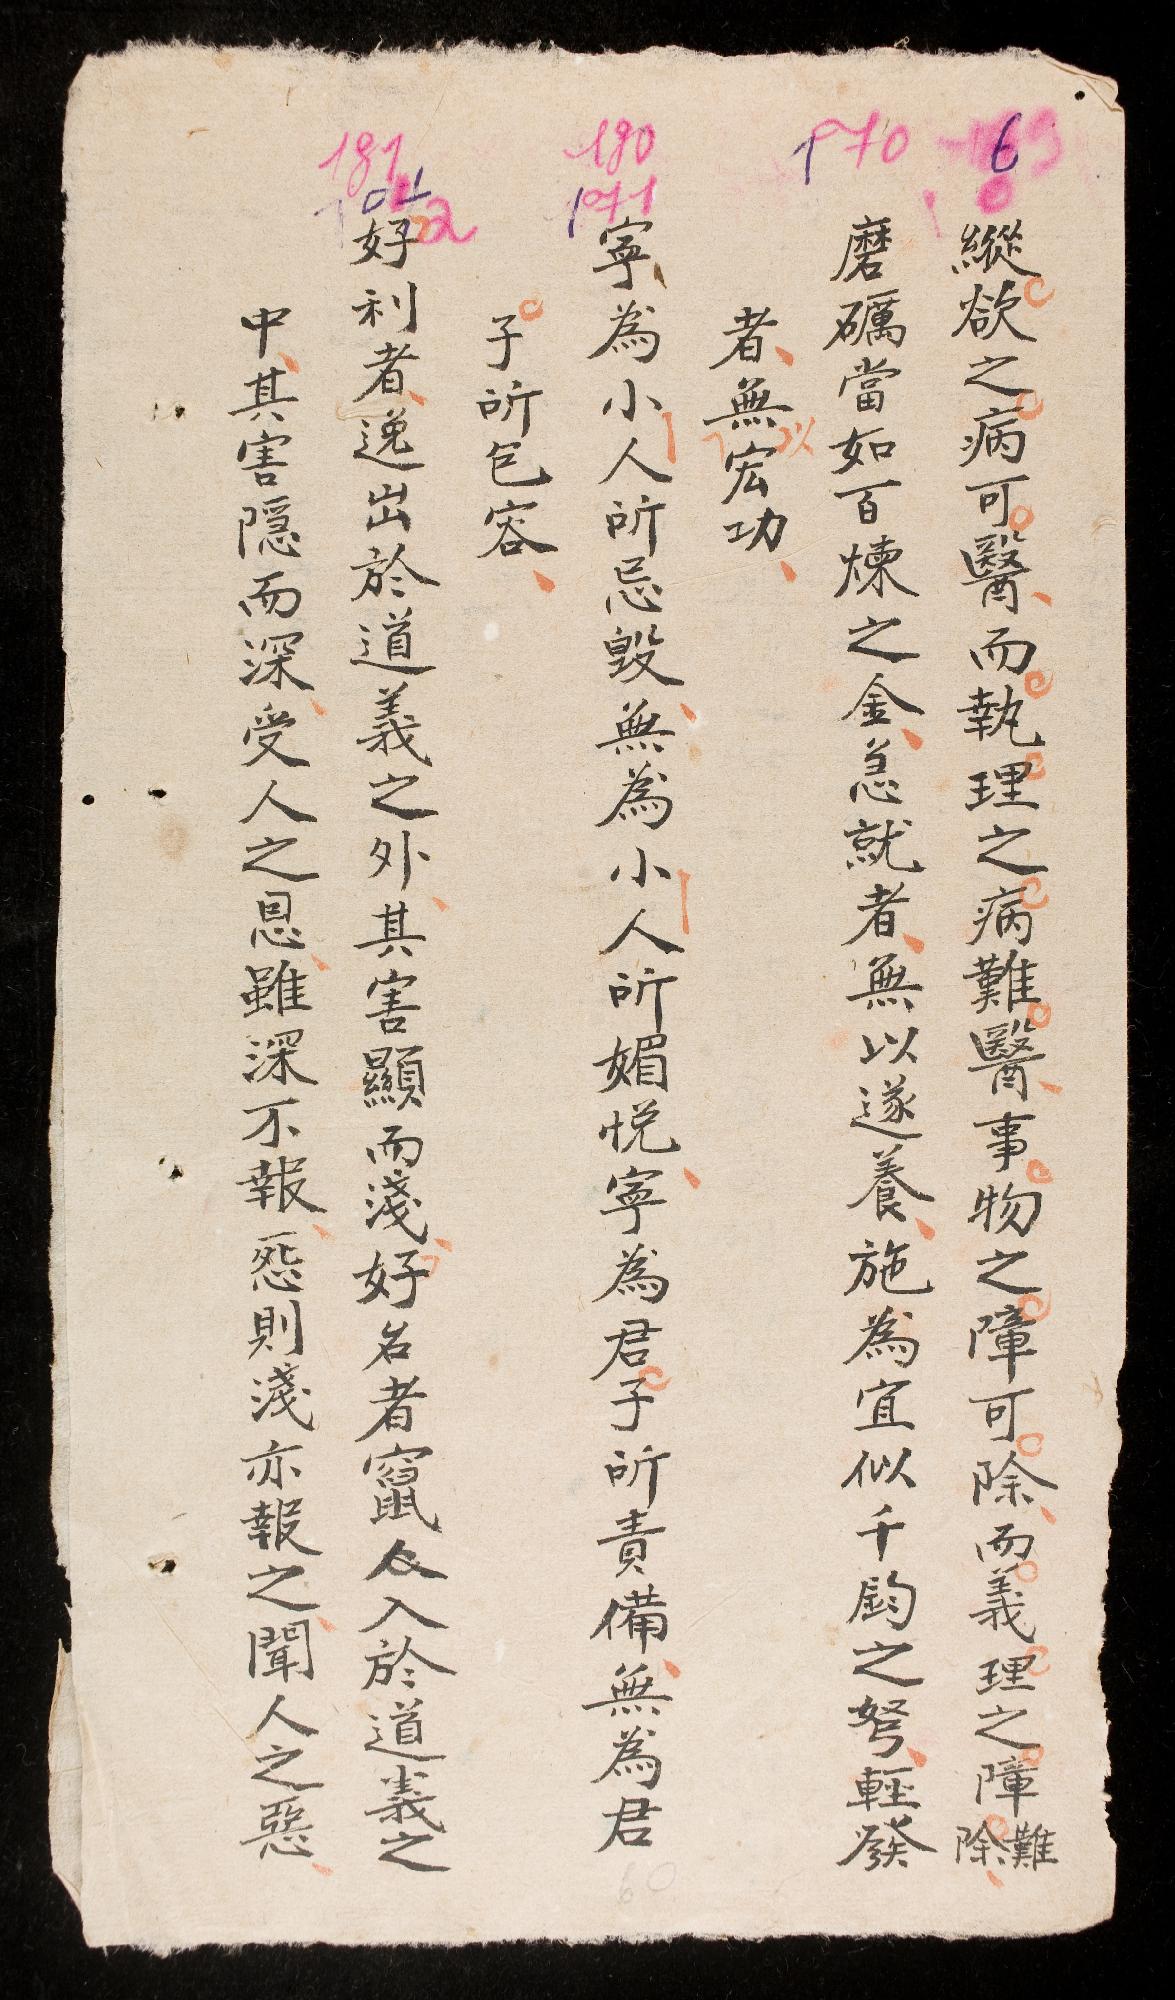 縱欲之病可醫而執理之病難醫事物之障可除而義理之障難除
磨礪當如百煉之金急就者無以遂養施為宜似千鈞之弩輕發
者無宏功
寧為小人所忌毀無為小人所媚悅寧為君子所責備無為君
子所包容
好利者逸出於道義之外其害顯而淺好名者竄入於道義之
中其害隱而深受人之恩雖深不報怨則淺亦報之聞人之惡
170
180
171
181
60